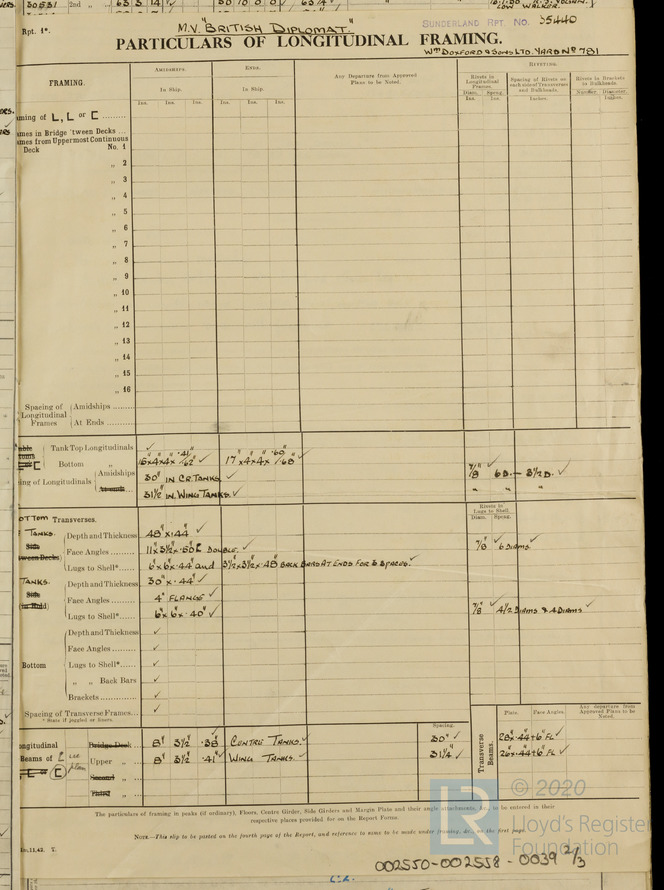 30531 2nd „ „ 63 5 14
Rpt. 1*.
M.V. "BRITISH DIPLOMAT."
SUNDERLAND RPT. NO. 35440
PARTICULARS OF LONGITUDINAL FRAMING.
WM DOXFORD & SONS LTD. YARD No 781
FRAMING.
AMIDSHIPS.
ENDS.
Any Departure from Approved
Plans to be Noted.
RIVETING.
In Ship.
In Ship.
Rivets in
Longitudinal
Frames.
Spacing of Rivets on
each side of Transverses
and Bulkheads.
Rivets in Brackets
to Bulkheads.
Diam. Spcng.
Number. Diameter.
Ins. Ins. Ins. Ins. Ins. Ins.
Ins. Ins. Inches. Inches.
aming of L, L or [ ......
ames in Bridge 'tween Decks ...
ames from Uppermost Continuous
Deck No. 1
„ 2
„ 3
„ 4
„ 5
„ 6
„ 7
„ 8
„ 9
„ 10
„ 11
„ 12
„ 13
„ 14
„ 15
„ 16
Spacing of
Longitudinal
Frames
Amidships ........
At Ends ........
Tank Top Longitudinals ✓
Bottom „
17"×4×4× .60"/.68" ✓
ing of Longitudinals
Amidships 30" IN CR. TANKS. ✓
31½ IN WING TANKS. ✓
7/8" ✓ 6 D. — 3½ D. ✓
„ „ „
OTTOM Transverses.
Rivets in
Lugs to Shell.
Diam. Spcng.
TANKS.
Depth and Thickness 48" × .44" ✓
Face Angles ...... 11×3½×.50 [ DOUBLE. ✓
7/8" 6 DIAMS. ✓
Lugs to Shell*...... 6"×6"×.44" and 3½×3½×.48" BACK BARS AT ENDS FOR 3 SPACES. ✓
TANKS.
Depth and Thickness 30" × .44" ✓
Face Angles ...... 4" FLANGE ✓
Lugs to Shell*...... 6"×6"×.40" ✓
7/8" ✓ 4½ DIAMS & 4 DIAMS ✓
Bottom
Depth and Thickness ✓
Face Angles ...... ✓
Lugs to Shell*...... ✓
„ „ Back Bars ✓
Brackets .............. ✓
Spacing of Transverse Frames... ✓
* State if joggled or liners.
Spacing.
Plate. Face Angles.
Any departure from
Approved Plans to be
Noted.
ongitudinal
Beams of [ see plan
Bridge Deck 8" 3½" .38" CENTRE TANKS. ✓ 30" ✓
Upper „ 8" 3½ .41" ✓ WING TANKS. ✓ 31¼" ✓
Second „
Third „
Transverse
Beams.
28"×.44+6" FL ✓
26"×.44+6" FL ✓
The particulars of framing in peaks (if ordinary), Floors, Centre Girder, Side Girders and Margin Plate and their angle attachments, &c., to be entered in their
respective places provided for on the Report Forms.
NOTE.—This slip to be posted on the fourth page of the Report, and reference to same to be made under framing, &c., on the first page.
© 2020
LR Lloyd's Register
Foundation
002550-002558-0039 2/3